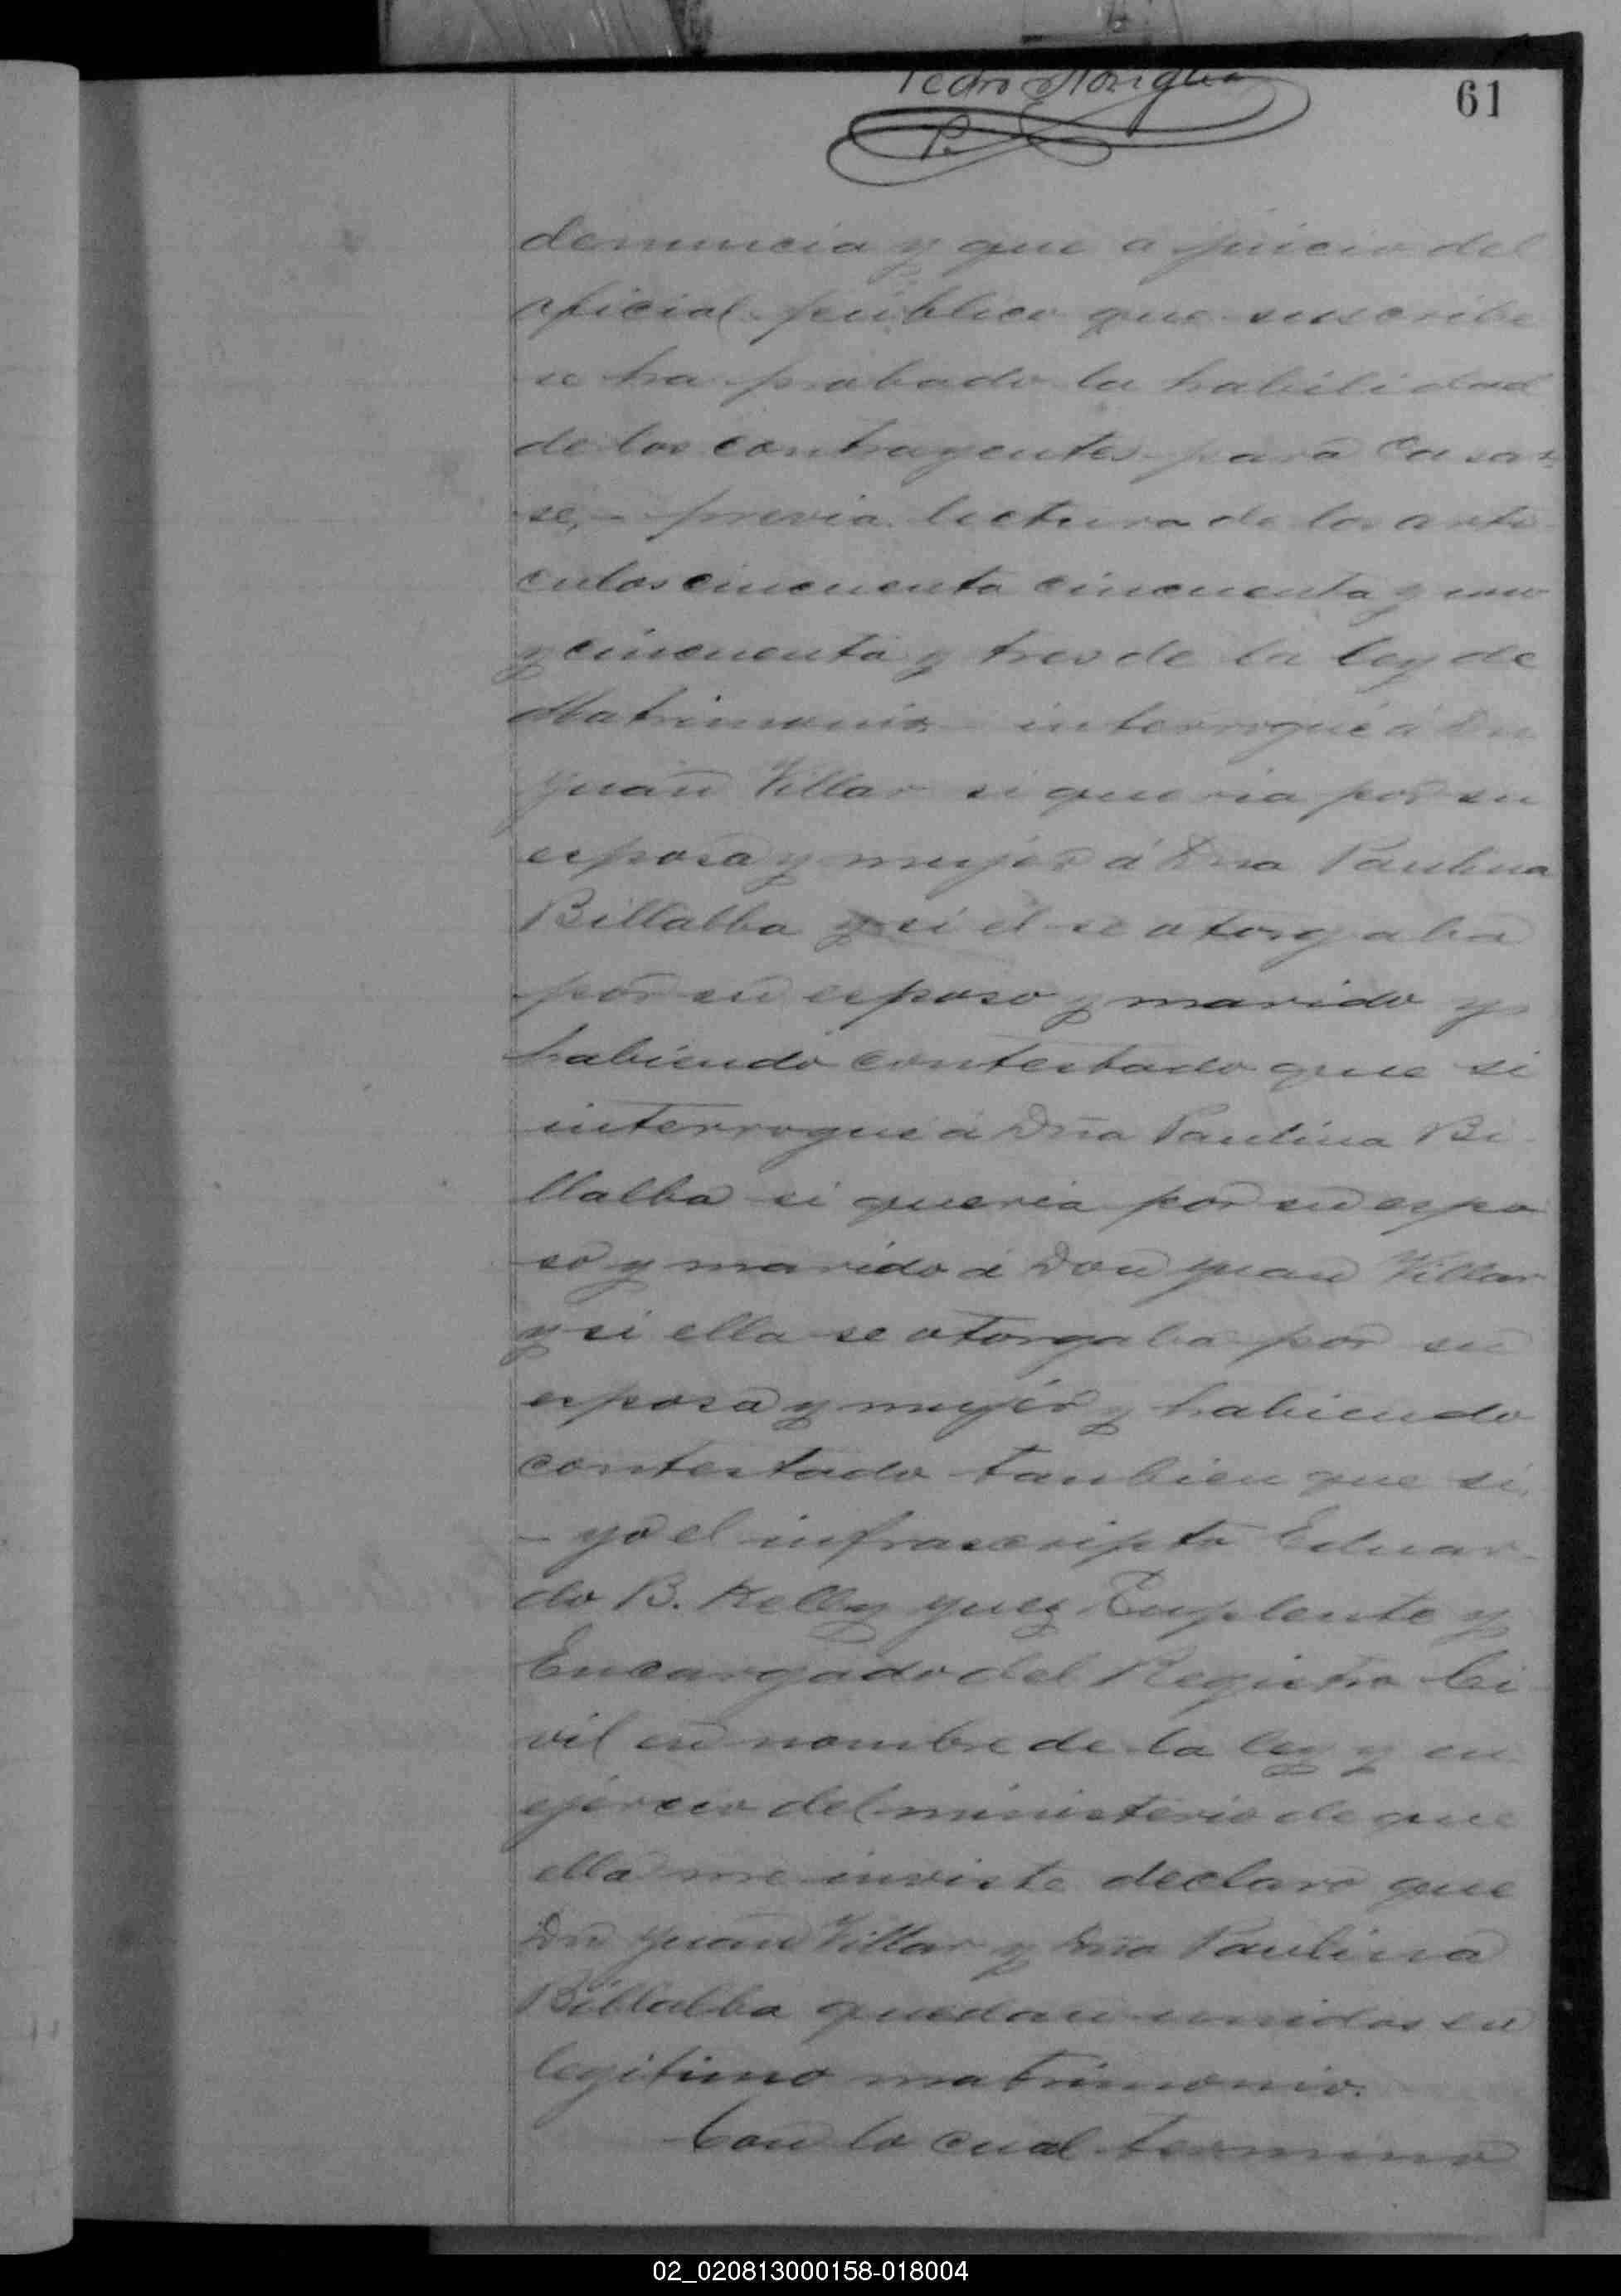 Pedro
61
P.
denuncia y que a juicio del
oficial público que suscribe
se ha probado la habilidad
de los contrayentes para casar
se, - previa lectura de los arti
culos cincuenta cincuenta y uno
y cincuenta y tres de la ley de
Matrimonio interrogué á Dn
Juan Villar si queria por su
esposa y mujer á Dña Paulina
Billalba y si él se otorgaba
por su esposo y marido y
habiendo contestado que si
interrogué á Dña Paulina Bi-
llalba si queria por su espo
so y marido á Don Juan Villar
y si ella se otorgaba por su
esposa y mujer y habiendo
contestado tanbien que si,
- yo el infrascripto Eduar-
do B. Kelly Juez Suplente y
Encargado del Registro Ci
vil en nombre de la ley y en
ejercio del ministerio de que
ella me inviste declaro que
Dn Juan Villar y Dña Paulina
Billalba quedan unidos en
legitimo matrimonio.
Con lo cual termino
02_020813000158-018004